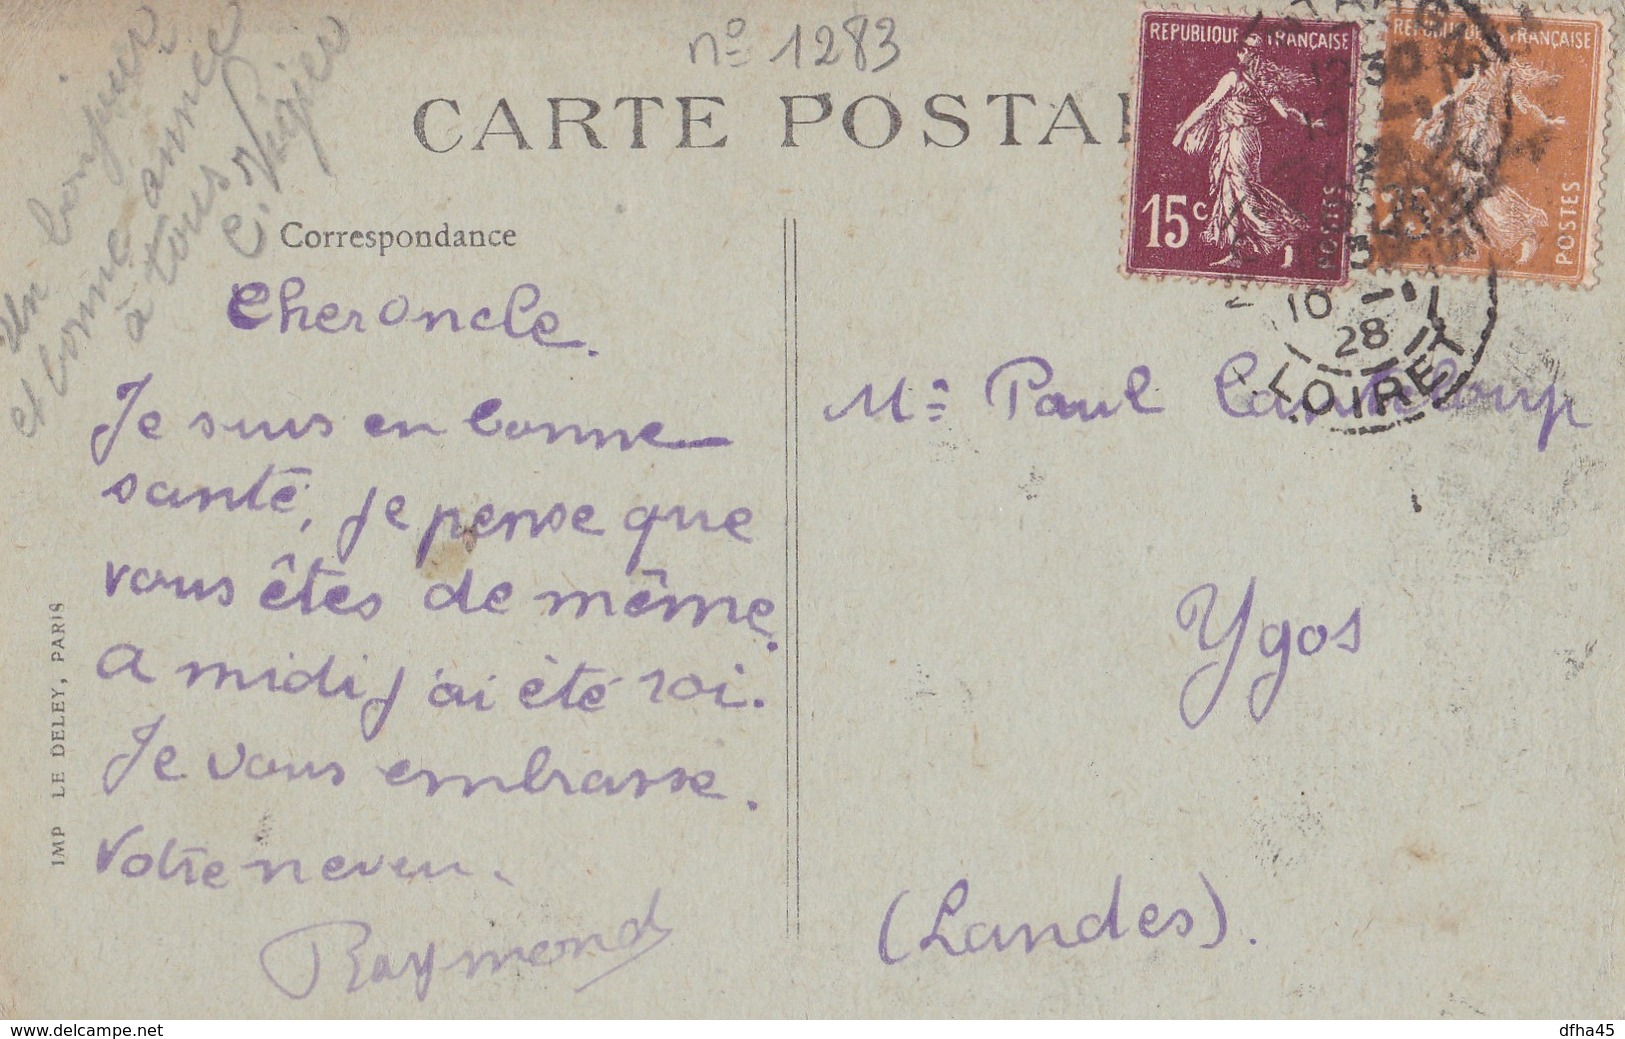 n° 1283
CARTE POSTAL
Un bonjour
et bonne année
à tous
REPUBLIQUE FRANÇAISE
15c
POSTES
REPUBLIQUE FRANÇAISE
25c
POSTES
12 30
10 - 1
28
LOIRET
Correspondance
Cher Oncle.
Je suis en bonne
santé, je pense que
vous êtes de même.
A midi j'ai été roi.
Je vous embrasse.
Votre neveu.
Raymond
Mr Paul Canteloup
Ygos
(Landes).
IMP LE DELEY, PARIS
www.delcampe.net
dfha45